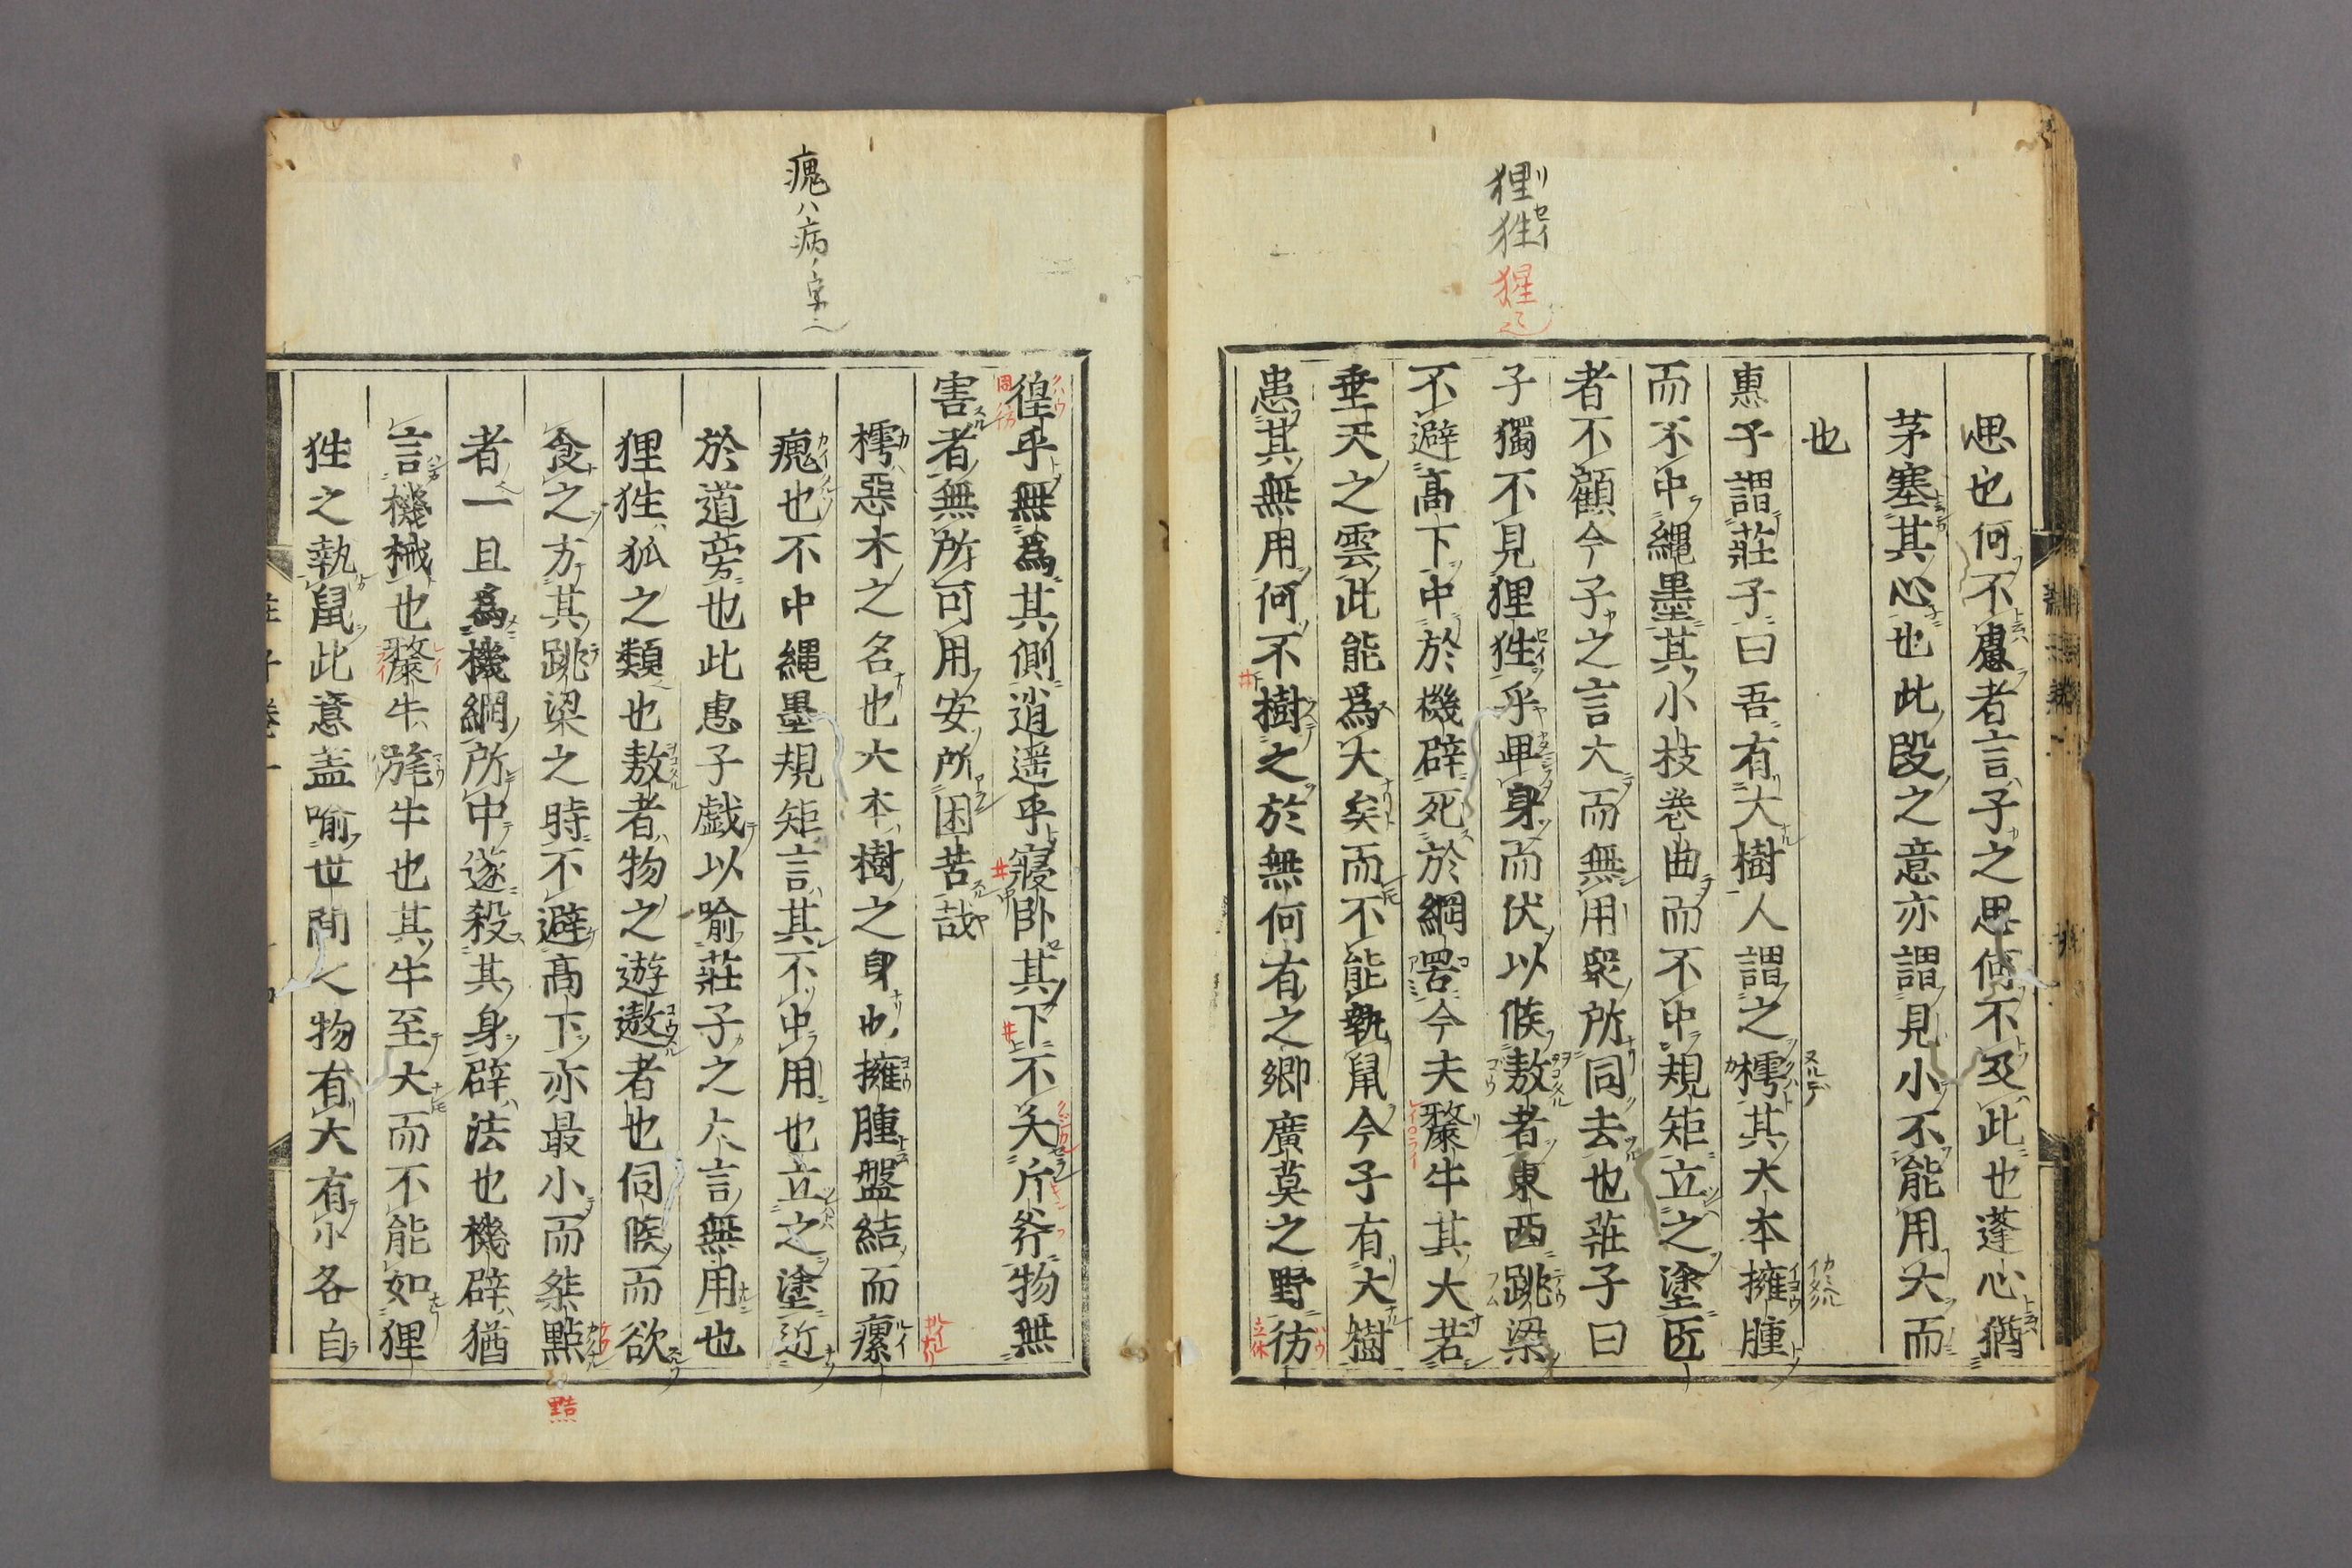 狸狌猩
思也何不慮者言子之思何不及此也蓬心猶
茅塞其心也此段之意亦謂見小不能用大而
也
惠子謂莊子曰吾有大樹人謂之樗其大本擁腫
而不中繩墨其小枝卷曲而不中規矩立之塗匠
者不顧今子之言大而無用衆所同去也莊子曰
子獨不見狸狌乎卑身而伏以候敖者東西跳梁
不避高下中於機辟死於網罟今夫斄牛其大若
垂天之雲此能爲大矣而不能執鼠今子有大樹
患其無用何不樹之於無何有之鄉廣莫之野彷
瘣ハ病ノ
徨乎無爲其側逍遥乎寢卧其下不夭斤斧物無
害者無所可用安所困苦哉
樗惡木之名也大本樹之身也擁腫盤結而瘰
瘣也不中繩墨規矩言其不中用也立之塗近
於道旁也此惠子戯以喻莊子之大言無用也
狸狌狐之類也敖者物之遊遨者也伺候而欲
食之方其跳梁之時不避高下亦最小而桀黠
者一旦爲機網所中遂殺其身辟法也機辟猶
言機械也斄牛旄牛也其牛至大而不能如狸
狌之執鼠此意盖喻世間之物有大有小各自
黠